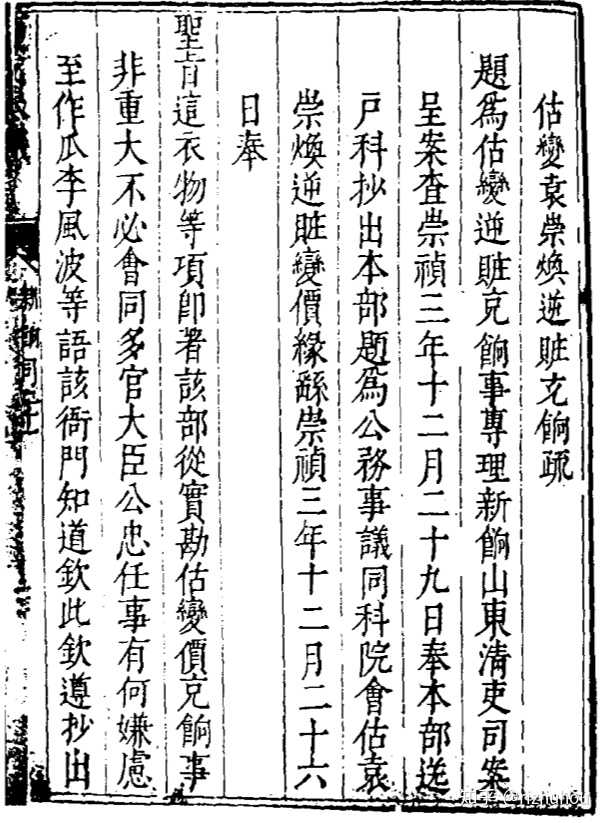 估變袁崇煥逆賍充餉疏
題爲估變逆賍充餉事專理新餉山東清吏司案
呈案查崇禎三年十二月二十九日奉本部送
戶科抄出本部題爲公務事議同科院會估袁
崇煥逆賍變價緣繇崇禎三年十二月二十六
日奉
聖旨這衣物等項卽著該部從實勘估變價充餉事
非重大不必會同多官大臣公忠任事有何嫌慮
至作瓜李風波等語該衙門知道欽此欽遵抄出
知乎